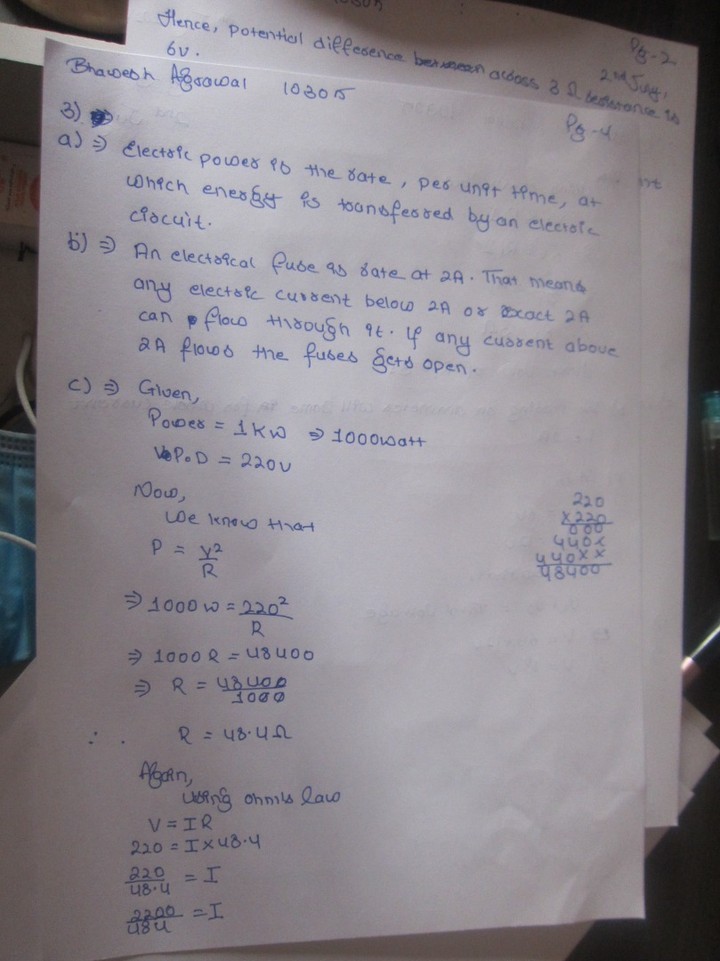 Hence, potential difference between across 3 Ω resistance is
6v.
Pg-2
2nd July,
Bhawesh Agrawal 10305
Pg-4
3)
a) ⇒ Electric power is the rate, per unit time, at
which energy is transferred by an electric
circuit.
b) ⇒ An electrical fuse is rate at 2A. That means
any electric current below 2A or exact 2A
can flow through it. If any current above
2A flows the fuses gets open.
c) ⇒ Given,
Power = 1KW ⇒ 1000watt
P.D = 220V
Now,
We know that
P = V²/R
⇒ 1000 W = 220²/R
⇒ 1000 R = 48400
⇒ R = 48400/1000
∴ R = 48.4Ω
220
x220
000
440x
440xx
48400
Again,
using ohm's law
V = IR
220 = I x 48.4
220/48.4 = I
2200/484 = I